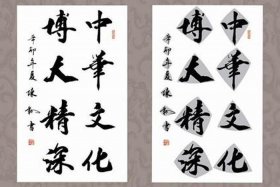 中華文化
博大精深
辛卯年夏
書
中華文化
博大精深
辛卯年夏
書